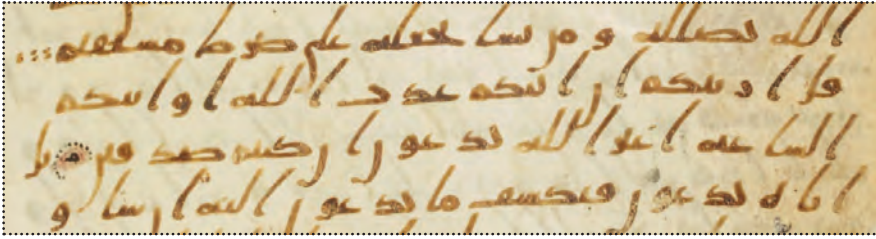 الله يضلله و من يشا يجعله على صرط مستقيم
قل ا ر يتكم ا ن ا تيكم عذ ب ا لله ا و ا تتكم
ا لساعه ا غير ا لله تد عو ن ا ن كنتم صد قين بل
ا يا ه تد عو ن فيكشف ما تد عو ن ا ليه ا ن شا و